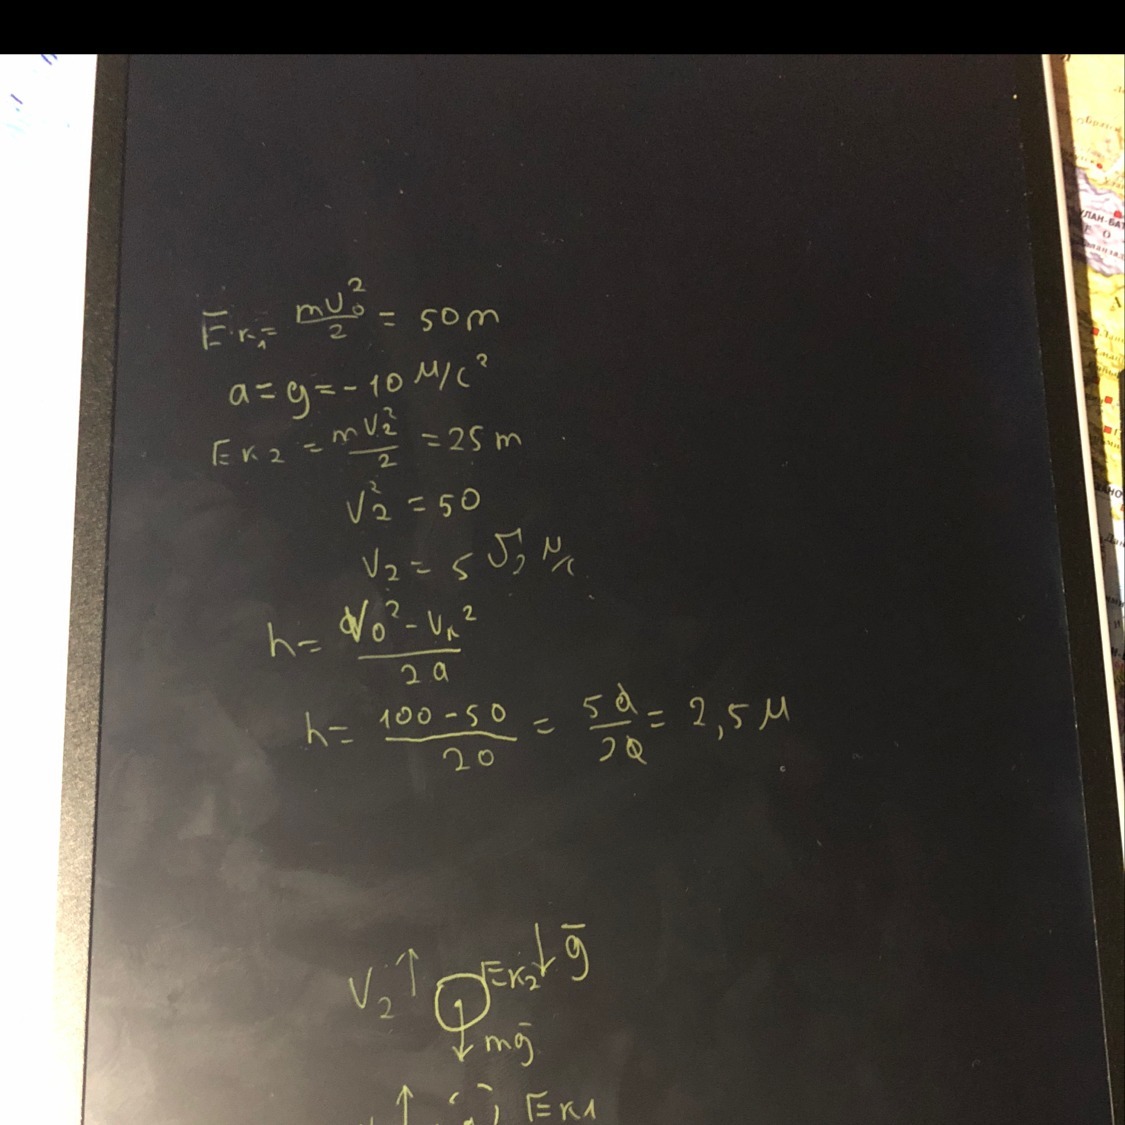 Eк₁ = mV₀²/2 = 50m
a = g = -10 м/с²
Eк₂ = mV₂²/2 = 25m
V₂² = 50
V₂ = 5√2 м/с
h = V₀² - Vк²/2a
h = 100 - 50/20 = 50/20 = 2,5 м
V₂ Eк₂ g
mg
Eк1
УЛАН-БАТ